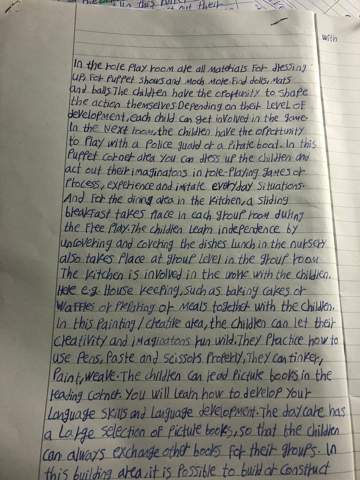 with
In the role play room are all materials for dressing
up, for puppet shows and much more find dolls, mats
and balls. The children have the oportunity to shape
the action themselves. Depending on their level of
development, each child can get involved in the game
In the next room, the children have the opportunity
to play with a police guard or a pirate boat. In this
Puppet corner area you can dress up the children and
act out their imaginations in role-playing games or
process, experience and imitate everyday situations.
And for the dining area in the kitchen, a sliding
breakfast takes place in each group room during
the free play. The children learn independence by
uncovering and covering the dishes lunch in the nursery
also takes place at group level in the group room
The kitchen is involved in the work with the children.
Here e.g. House keeping, such as baking cakes or
waffles or preparing of meals together with the children.
In this painting / creative area, the children can let their
creativity and imaginations run wild. They practice how to
use pens, paste and scissors properly, they can tinker,
paint, weave. The children can read picture books in the
reading corner. You will learn how to develop your
language skills and language development. The daycare has
a large selection of picture books, so that the children
can always exchange other books for their groups. In
this building area, it is possible to build or construct